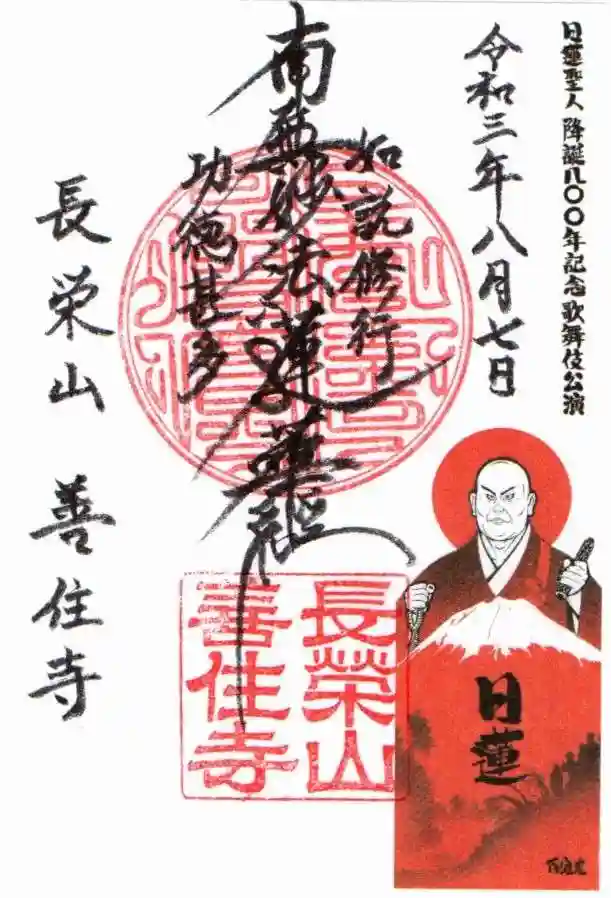 日蓮聖人 降誕八〇〇年記念歌舞伎公演
令和三年八月七日
如説修行
南無妙法蓮華経
功徳甚多
長栄山 善住寺
長榮山
善住寺
日蓮